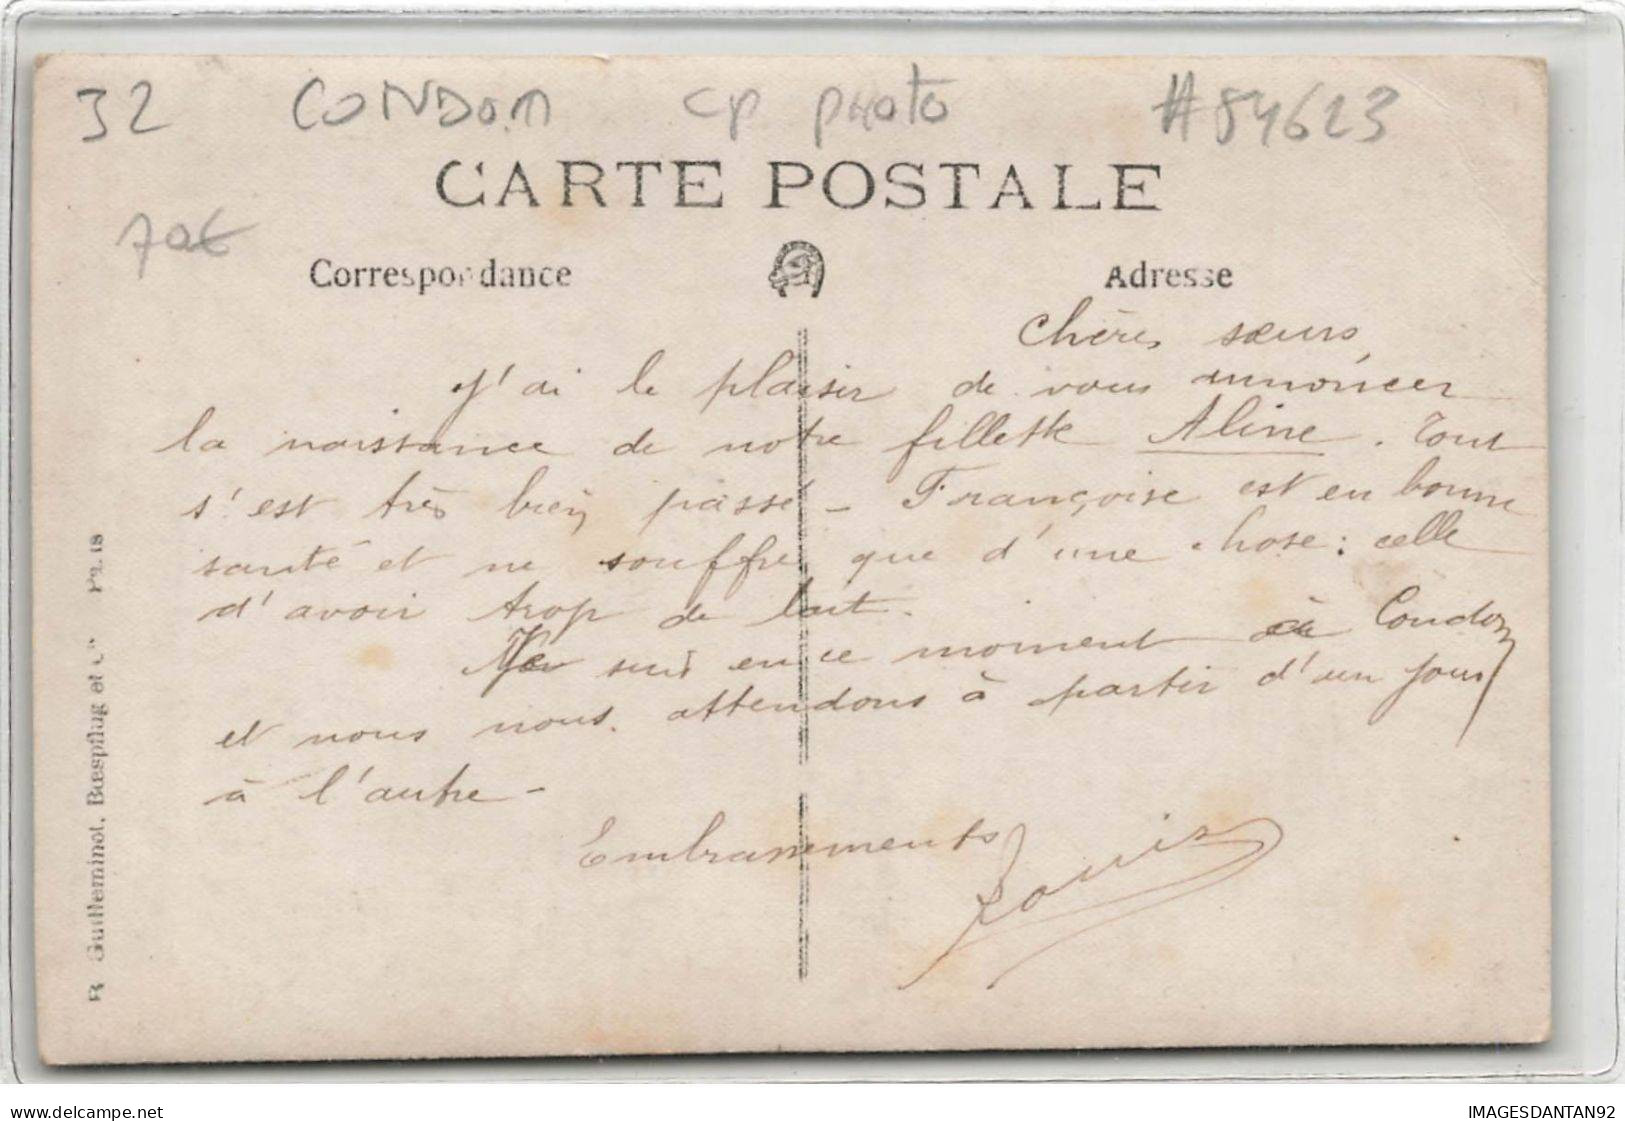 32 CONDOM CP PHOTO #84623
CARTE POSTALE
70€
Correspondance
Adresse
Chères sœurs,
J'ai le plaisir de vous annoncer
la naissance de notre fillette Aline. Tout
s'est très bien passé - Françoise est en bonne
santé et ne souffre que d'une chose : celle
d'avoir trop de lait.
suis en ce moment à Condom
et nous nous attendons à partir d'un jour
à l'autre -
Embrassements
Louis
R. Guilleminot, Bœspflug et Cie Paris
delcampe.net
IMAGESDANTAN92